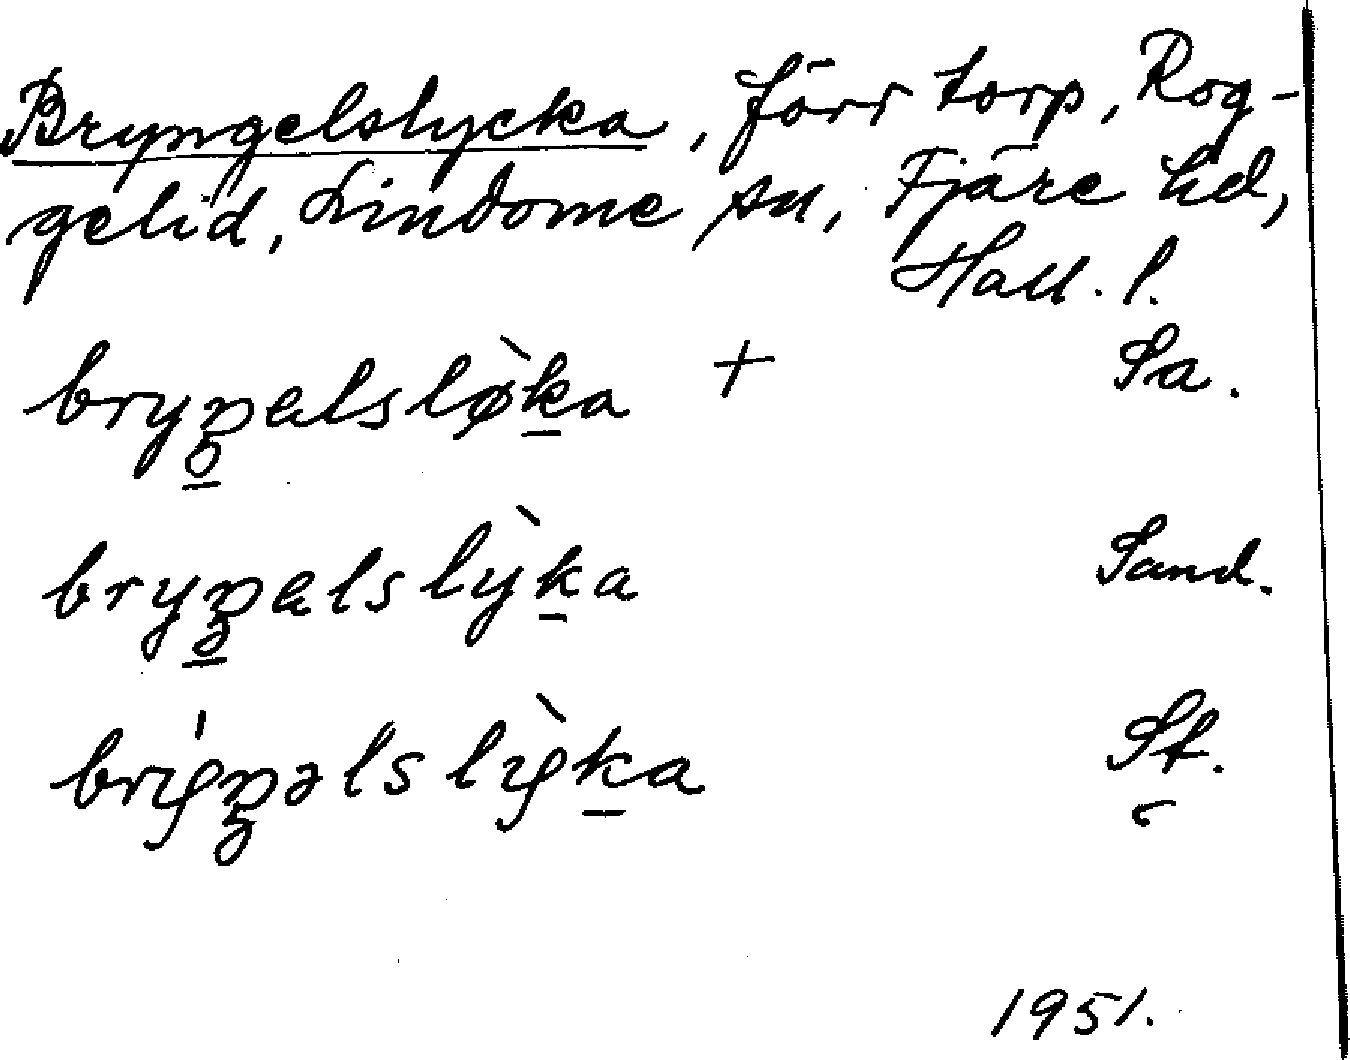 Bryngelslycka, förr torp, Rog-
gelid, Lindome sn, Fjäre hd,
Hall. l.
bryŋalsløka + Sa.
bryŋalslyka Sand.
bryŋəlslyka St.
1951.